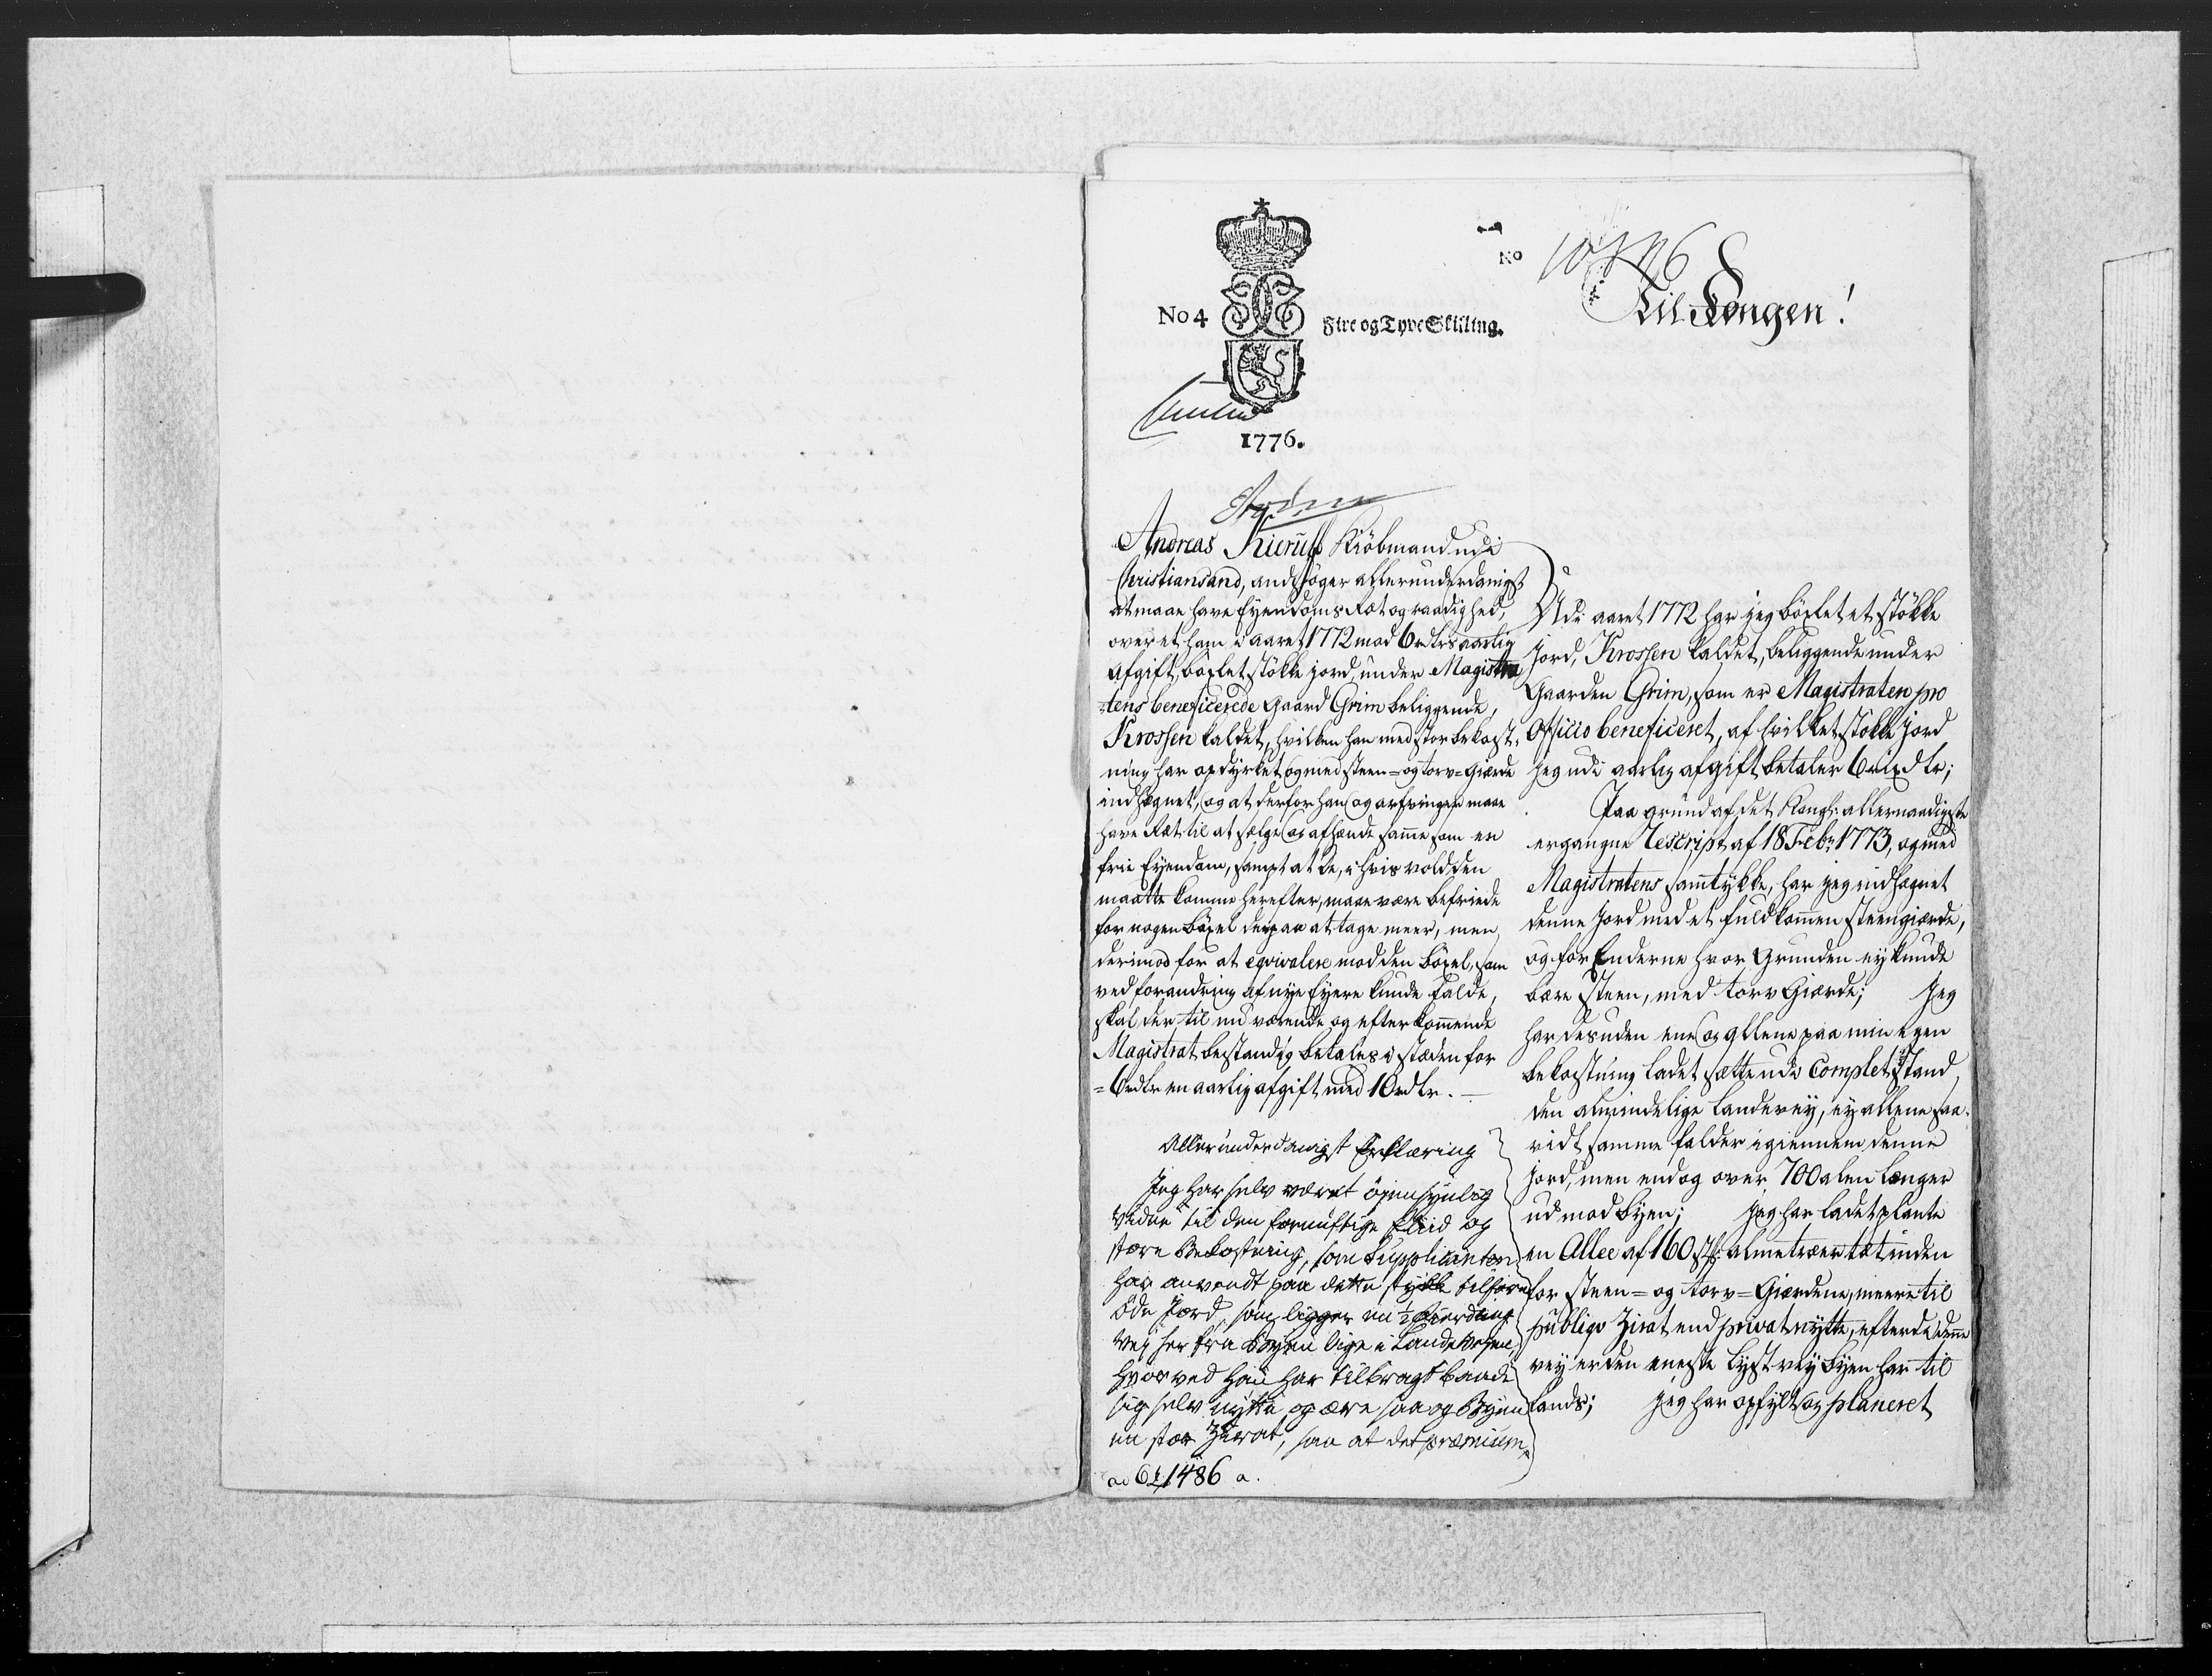 No 4
Fire og Tyve Skilling.
1776.
No
Til Kongen!
Andreas Kierulf Kiöbmand udi
Christiansand, andsöger allerunderdanigst
at maae have Eyendoms Ræt og raadighed,
over et ham i aaret 1772 mod 6 rdlrs aarlig
afgift, böxlet stökke jord, under Magistra
-tens beneficerede Gaard Grim beliggende,
Krossen kaldet, hvilken han med stor bekost-
ning har opdyrket og med steen- og torv-Giærde
indhegnet, og at derfor han og arfvinger maae
have Ræt til at sælge og afhænde samme som en
frie Eyendom, sampt at de, i hvis vold den
maatte komme herefter, maae være befriede
for nogen Böxel derpaa at tage meer, men
derimod for at eqvivalere mod den böxel, som
ved forandring af nye Eyere kunde falde,
skal der til nu værende og efterkommende
Magistrat bestandig betales i stæden for
=6 rdlr en aarlig afgift med 10 rdlr. -
Allerunderdanigst Erklæring
Jeg har selv været öjensynlig
Vidne til den fornuftige Fliid og
store Bekostning, som Supplicanten
har anvendt paa dette stykke tilforn
öde Jord, som ligger en ½ Fierding
Vej her fra Byen lige i Landevejen,
hvorved han har tilbragt baade
sig selv nytte og ære saa og Byen
en stor Zirat, saa at det præmium
ad 6 1486 a.
Udi aaret 1772 har jeg böxlet et stökke
Jord, Krossen kaldet, beliggende under
Gaarden Grim, som er Magistraten pro
Officio beneficeret, af hvilket stökke jord
jeg udi aarlig afgift betaler 6 rixdlr;
Paa grund af det Kongl: allernaadigste
ergangne Rescript af 18 Febr 1773, og med
Magistratens samtykke, har jeg indhegnet
denne Jord med et fuldkommen steengiærde,
og for Enderne hvor Grunden ey kunde
bære steen, med torv Giærde; Jeg
har desuden ene og allene paa min egen
bekostning ladet sætte udi Complet Stand
den almindelige landevey, ey allene saa
vidt samme falder igiennem denne
jord, men endog over 700 alen længer
ud mod Byen; Jeg har ladet plante
en Allee af 160 st: almetræer tæt inden
for steen= og torv=Giærdene, meere til
publiqv Zirat end privat nytte, efterdi denne
vey er den eneste lystvey Byen har til
lands; Jeg har opfyldt og planeret